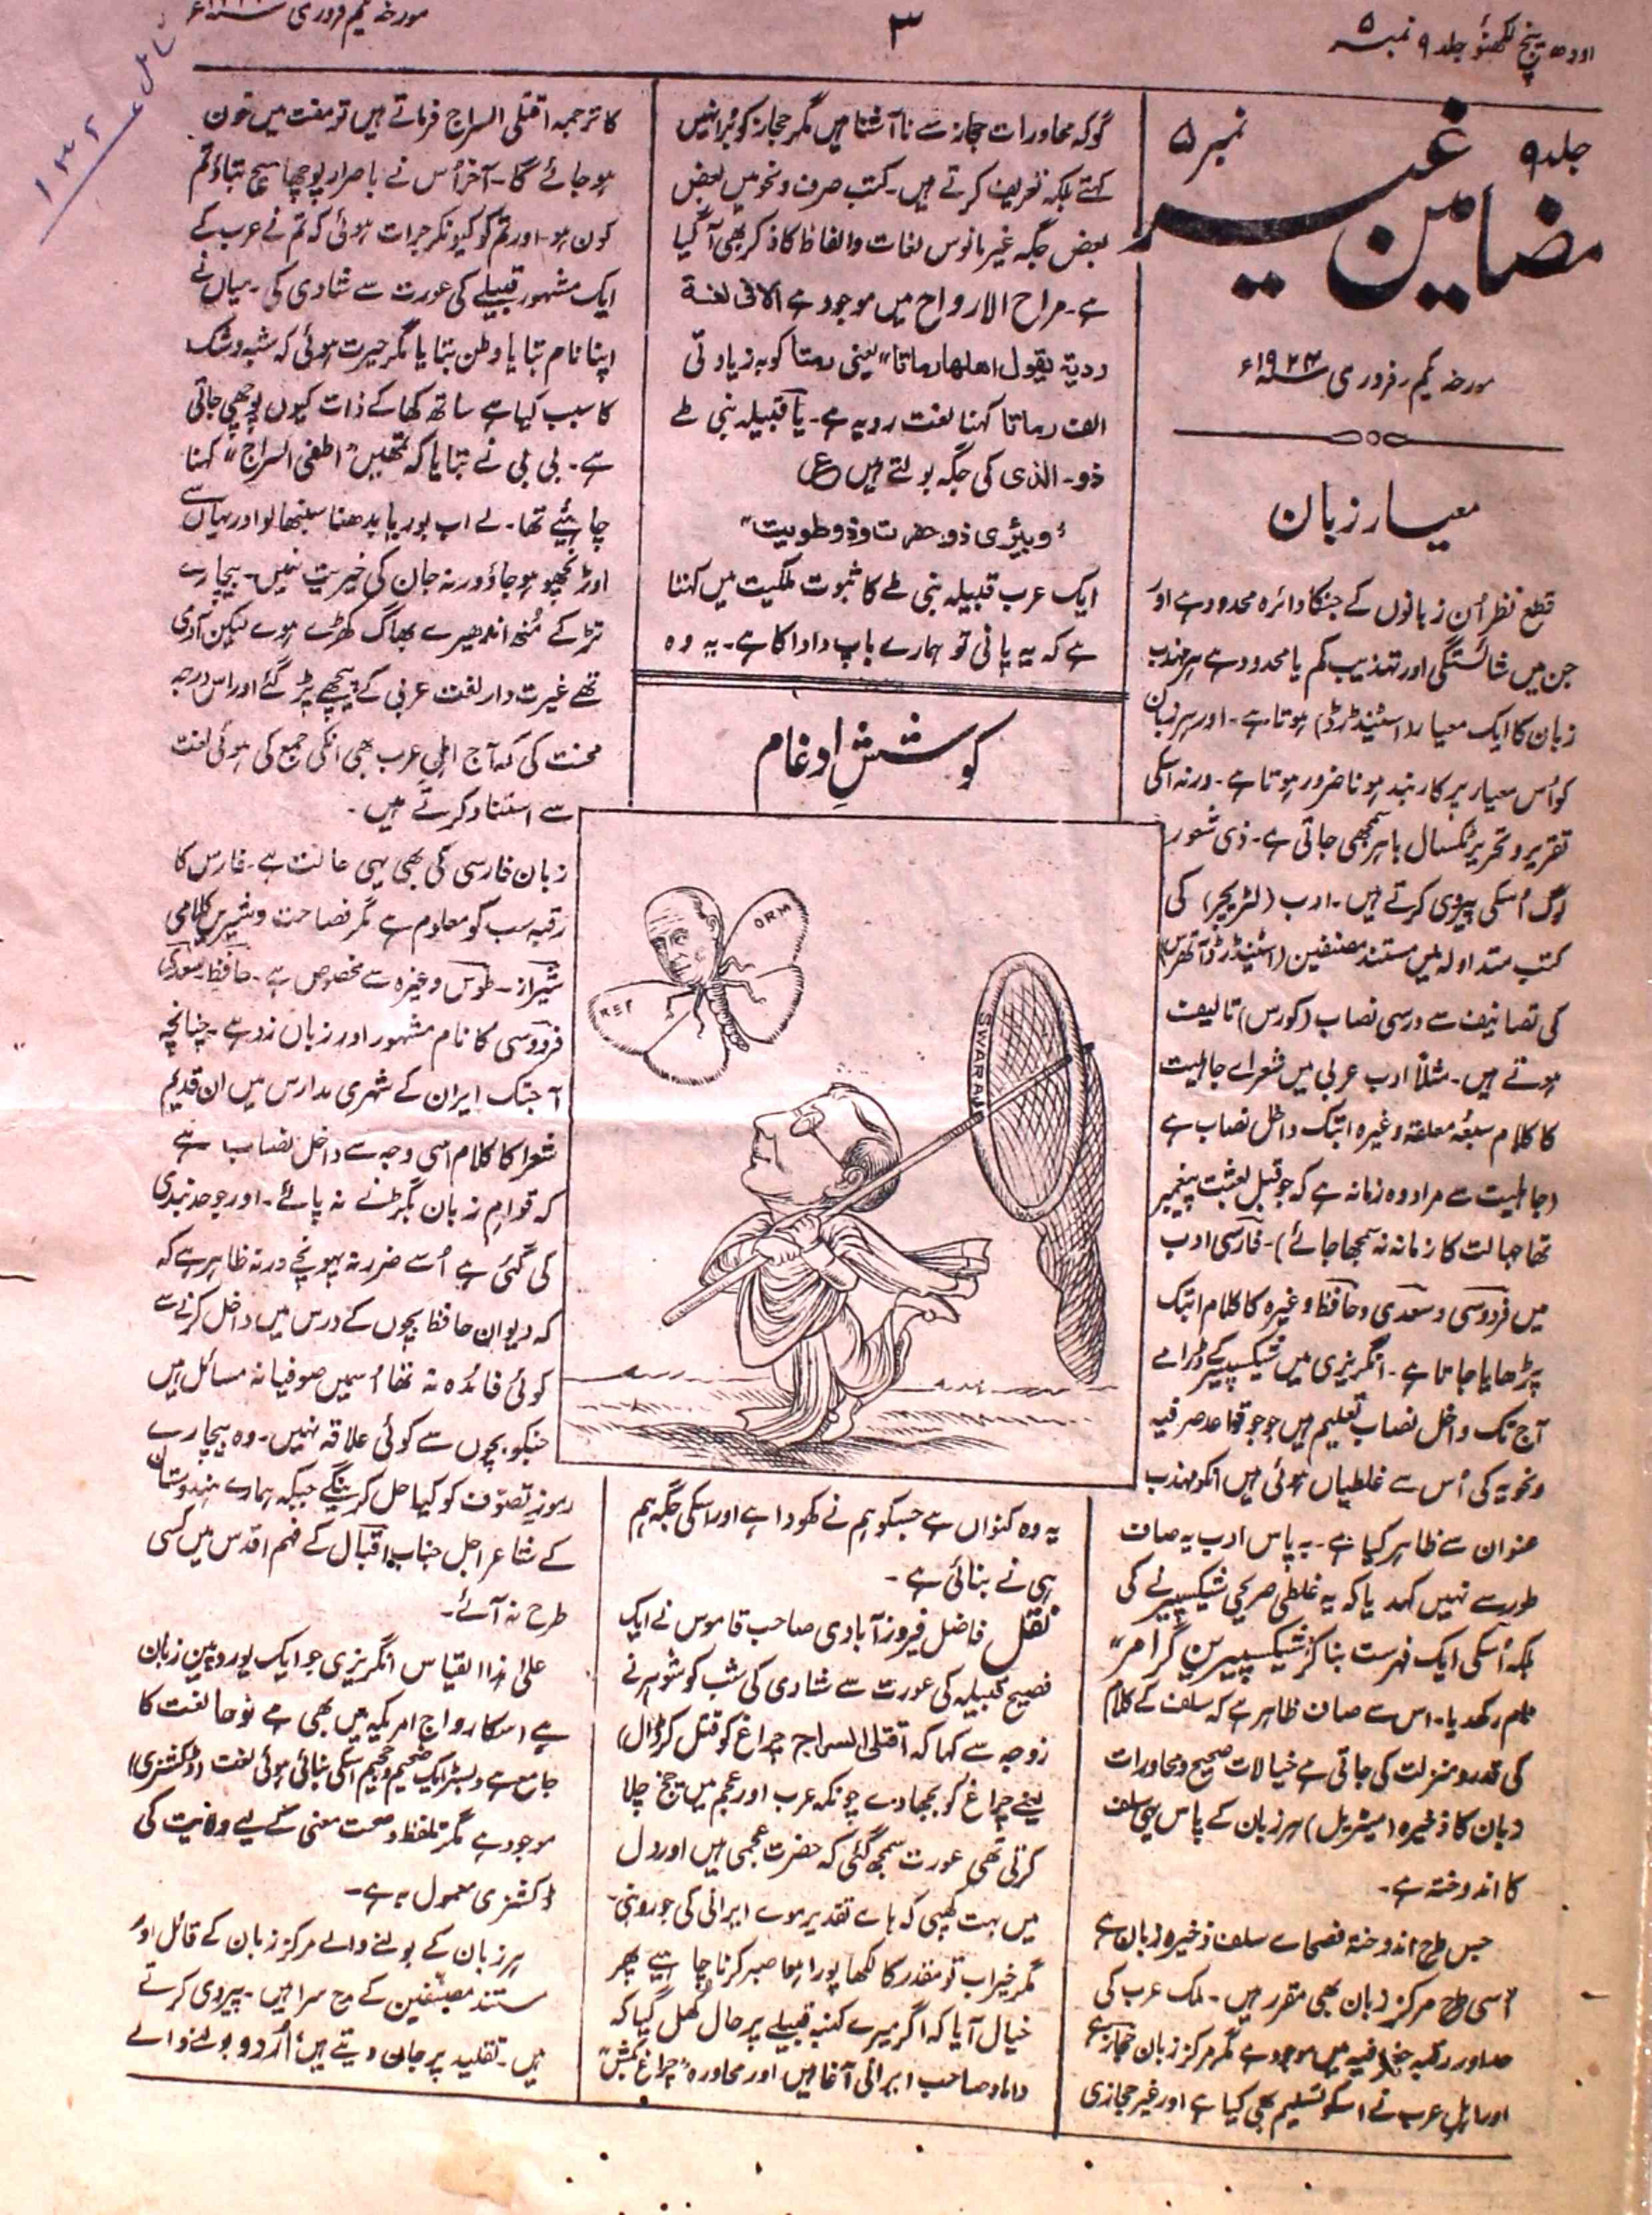 اودھ پنچ لکھنؤ جلد ۹ نمبر ۵
۳
مورخہ یکم فروری
جلد ۹
نمبر ۵
مضامین غیر
مورخہ یکم فروری ۱۹۲۴ء
معیار زبان
قطع نظر اُن زبانوں کے جنکا دائرہ محدود ہے اور
جن میں شائستگی اور تہذیب کم یا محدود ہے ہر مہذب
زبان کا ایک معیار (اسٹینڈرڈ) ہوتا ہے۔ اور ہر زبان
کو اُس معیار پر کاربند ہونا ضرور ہوتا ہے۔ ورنہ اسکی
تقریر و تحریر ٹکسال باہر سمجھی جاتی ہے۔ ذی شعور
لوگ اُسکی پیروی کرتے ہیں۔ ادب (لٹریچر) کی
کتب متداولہ میں مستند مصنفین (اسٹینڈرڈ آتھرس)
کی تصانیف سے درسی نصاب (کورس) تالیف
ہوتے ہیں۔ مثلاً ادب عربی میں شعراے جاہلیت
کا کلام سبعہ معلقہ وغیرہ ابتک داخل نصاب ہے
(جاہلیت سے مراد وہ زمانہ ہے کہ جو قبل بعثت پیغمبر
تھا جہالت کا زمانہ نہ سمجھا جائے)۔ فارسی ادب
میں فردوسی و سعدی و حافظ وغیرہ کا کلام ابتک
پڑھایا جاتا ہے۔ انگریزی میں شیکسپیر کے ڈرامے
آج تک داخل نصاب تعلیم ہیں جو جو قواعد صرفیہ
ونحویہ کی اُس سے غلطیاں ہوئی ہیں انکو مہذب
عنوان سے ظاہر کیا ہے۔ بہ پاس ادب یہ صاف
طور سے نہیں کہدیا کہ یہ غلطی صریحی شیکسپیر نے کی
بلکہ اُسکی ایک فہرست بنا کر "شیکسپیرین گرامر"
نام رکھدیا۔ اس سے صاف ظاہر ہے کہ سلف کے کلام
کی قدر و منزلت کی جاتی ہے خیالات صحیح و محاورات
زبان کا ذخیرہ (میٹریل) ہر زبان کے پاس یہی سلف
کا اندوختہ ہے۔
جس طرح اندوختہ فصحاے سلف ذخیرہ زبان ہے
اُسی طرح مرکز زبان بھی مقرر ہیں۔ ملک عرب کی
حد اور رقبہ جغرافیہ میں موجود ہے مگر مرکز زبان حجاز ہے
اور اہل عرب نے اسکو تسلیم بھی کیا ہے اور غیر حجازی
گو کہ محاورات حجاز سے ناآشنا ہیں مگر حجاز کو بُرا نہیں
کہتے بلکہ تعریف کرتے ہیں۔ کتب صرف و نحو میں بعض
بعض جگہ غیر مانوس لغات و الفاظ کا ذکر بھی آ گیا
ہے۔ مراح الارواح میں موجود ہے الافی لغة
ردیة یقول اھلھا رماتا" یعنی رمتا کو بہ زیادتی
الف رماتا کہنا لغت ردیہ ہے۔ یا قبیلہ بنی طے
ذو۔ الذی کی جگہ بولتے ہیں (ع)
"وبیری ذو حفرت وذو طویت"
ایک عرب قبیلہ بنی طے کا ثبوت ملکیت میں کہتا
ہے کہ یہ پانی تو ہمارے باپ دادا کا ہے۔ یہ وہ
کوشش ادغام
ORM
REF
SWARAJ
یہ وہ کنواں ہے جسکو ہم نے کھودا ہے اور اسکی جگہ ہم
ہی نے بنائی ہے۔
نقل فاضل فیروزآبادی صاحب قاموس نے ایک
فصیح قبیلہ کی عورت سے شادی کی شب کو شوہر نے
زوجہ سے کہا کہ اقتلی السراج چراغ کو قتل کر ڈال)
یعنے چراغ کو بجھا دے چونکہ عرب اور عجم میں چخ چلا
کرتی تھی عورت سمجھ گئی کہ حضرت عجمی ہیں اور دل
میں بہت کھپی کہ ہاے تقدیر موے ایرانی کی جورو بنی۔
مگر خیر اب تو مقدر کا لکھا پورا ہوا صبر کرنا چاہیے پھر
خیال آیا کہ اگر میرے کنبہ قبیلے پر حال کھل گیا کہ
داماد صاحب ایرانی آغا ہیں اور محاورہ "چراغ کُش"
کا ترجمہ اقتلی السراج فرماتے ہیں تو مفت میں خون
ہو جائے گا۔ آخر اُس نے باصرار پوچھا سچ بتاؤ تم
کون ہو۔ اور تم کو کیونکر جرات ہوئی کہ تم نے عرب کے
ایک مشہور قبیلے کی عورت سے شادی کی۔ میاں نے
اپنا نام بتایا وطن بتایا مگر حیرت ہوئی کہ شبہ و شک
کا سبب کیا ہے ساتھ کھا کے ذات کیوں پوچھی جاتی
ہے۔ بی بی نے بتایا کہ تمھیں "اطفی السراج" کہنا
چاہئیے تھا۔ لے اب بوریا بدھنا سنبھالو اور یہاں سے
اوڑنچھو ہو جاؤ ورنہ جان کی خیریت نہیں۔ بیچارے
تڑکے مُنھ اندھیرے بھاگ کھڑے ہوے لیکن آدمی
تھے غیرت دار لغت عربی کے پیچھے پڑ گئے اور اس درجہ
محنت کی کہ آج اہل عرب بھی انکی جمع کی ہوئی لغت
سے استناد کرتے ہیں۔
زبان فارسی کی بھی یہی حالت ہے۔ فارس کا
رقبہ سب کو معلوم ہے مگر فصاحت و شیریں کلامی
شیراز۔ طوس وغیرہ سے مخصوص ہے۔ حافظ سعدی
فردوسی کا نام مشہور اور زباں زد ہے۔ چنانچہ
آجتک ایران کے شہری مدارس میں ان قدیم
شعرا کا کلام اسی وجہ سے داخل نصاب ہے
کہ قوام زبان بگڑنے نہ پائے۔ اور جو حد بندی
کی گئی ہے اُسے ضرر نہ پہونچے ورنہ ظاہر ہے کہ
کہ دیوان حافظ بچوں کے درس میں داخل کرنے سے
کوئی فائدہ نہ تھا اُسمیں صوفیانہ مسائل ہیں
جنکو بچوں سے کوئی علاقہ نہیں۔ وہ بیچارے
رموز تصوف کو کیا حل کرینگے جبکہ ہمارے ہندوستان
کے شاعر اجل جناب اقبال کے فہم اقدس میں کسی
طرح نہ آئے۔
علیٰ ہذا القیاس انگریزی جو ایک یوروپین زبان
ہے اسکا رواج امریکہ میں بھی ہے نوحا لغت کا
جامع ہے وبسٹر ایک ضخیم و حجیم اسکی بنائی ہوئی لغت (ڈکشنری)
موجود ہے مگر تلفظ و صحت معنی کے لیے
ڈکشنری معمول بہ ہے۔
ہر زبان کے بولنے والے مرکز زبان کے قائل اور
مستند مصنفین کے مدح سرا ہیں۔ پیروی کرتے
ہیں۔ تقلید پر جان دیتے ہیں اُردو بولنے والے